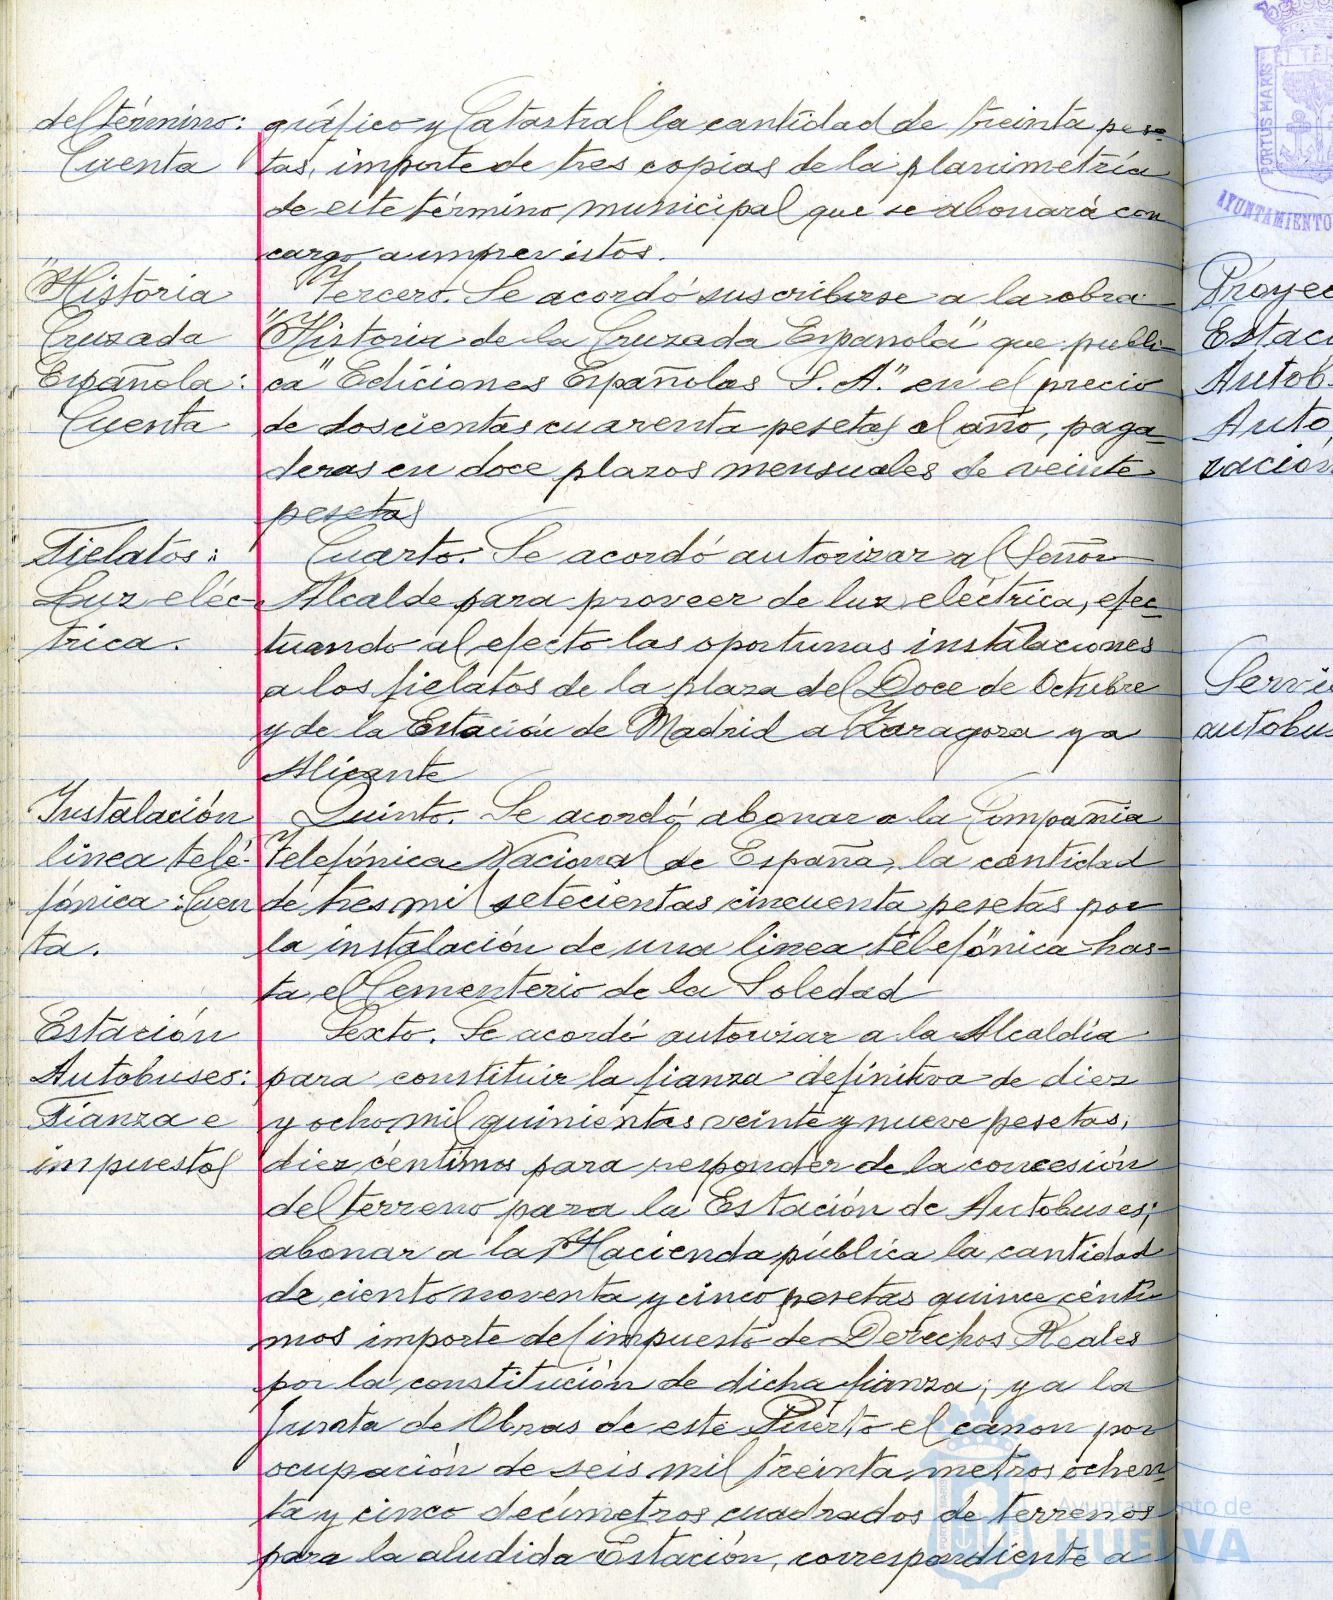 del término:
Cuenta
gráfico y Catastral la cantidad de treinta pese-
tas, importe de tres copias de la planimetría
de este término municipal que se abonará con
cargo a imprevistos.
"Historia
Cruzada
Española:
Cuenta
Tercero. Se acordó suscribirse a la obra
"Historia de la Cruzada Española" que publi-
ca "Ediciones Españolas S. A." en el precio
de doscientas cuarenta pesetas al año, paga-
deras en doce plazos mensuales de veinte
pesetas
Fielatos:
Luz eléc-
trica.
Cuarto. Se acordó autorizar al Señor
Alcalde para proveer de luz eléctrica, efec-
tuando al efecto las oportunas instalaciones
a los fielatos de la plaza del Doce de Octubre
y de la Estación de Madrid a Zaragoza y a
Alicante
Instalación
linea tele-
fónica: Cuen
ta.
Quinto. Se acordó abonar a la Compañia
Telefónica Nacional de España, la cantidad
de tres mil setecientas cincuenta pesetas por
la instalación de una linea telefónica has-
ta el Cementerio de la Soledad
Estación
Autobuses:
Fianza e
impuestos
Sexto. Se acordó autorizar a la Alcaldía
para constituir la fianza definitiva de diez
y ocho mil quinientas veinte y nueve pesetas,
diez céntimos para responder de la concesión
del terreno para la Estación de Autobuses;
abonar a la Hacienda pública la cantidad
de ciento noventa y cinco pesetas quince cénti-
mos importe del impuesto de Derechos Reales
por la constitución de dicha fianza; y a la
Junta de Obras de este Puerto el canon por
ocupación de seis mil treinta metros ochen-
ta y cinco decímetros cuadrados de terrenos
para la aludida Estación, correspondiente a
Ayuntamiento de
HUELVA
PORTUS MARIS
ET TER
AYUNTAMIENTO
Proyec
Estaci
Autob
Auto
zación
Servi
autobus